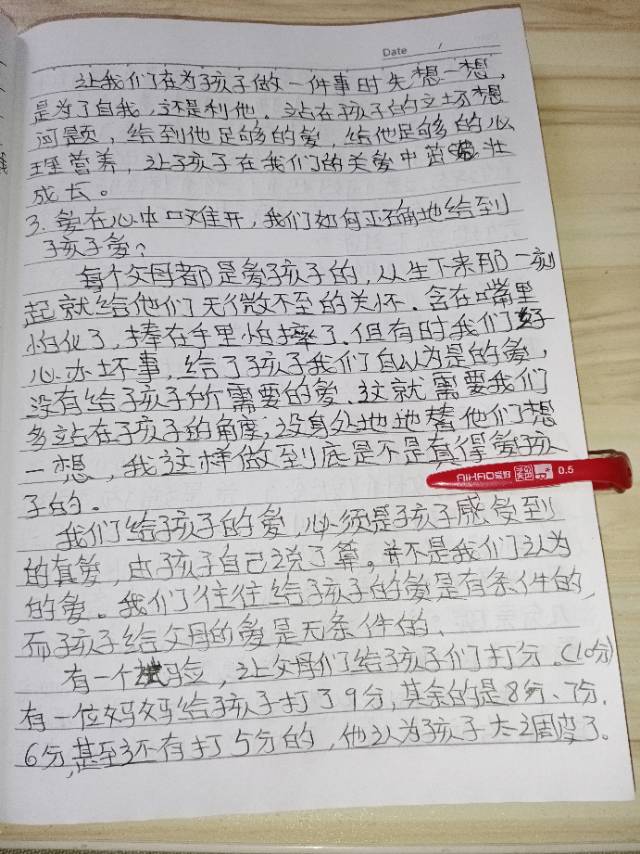 Date /
让我们在为孩子做一件事时先想一想，
是为了自我，还是利他。站在孩子的立场想
问题，给到他足够的爱，给他足够的心
理营养，让孩子在我们的关爱中茁壮
成长。
3. 爱在心中口难开，我们如何正确地给到
孩子爱？
每个父母都是爱孩子的，从生下来那一刻
起就给他们无微不至的关怀。含在嘴里
怕化了，捧在手里怕摔了。但有时我们好
心办坏事，给了孩子我们自以为是的爱，
没有给孩子所需要的爱。这就需要我们
多站在孩子的角度，设身处地地替他们想
一想，我这样做到底是不是真得爱孩
子的。
AIHAO爱好 0.5
我们给孩子的爱，必须是孩子感受到
的真爱，由孩子自己说了算。并不是我们认为
的爱。我们往往给孩子的爱是有条件的，
而孩子给父母的爱是无条件的。
有一个试验，让父母们给孩子们打分。(10分)
有一位妈妈给孩子打了9分，其余的是8分、7分，
6分，甚至还有打5分的，他认为孩子太调皮了。